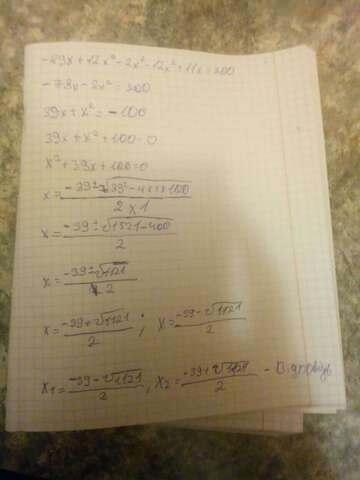 -89x+12x²-2x²-12x²+11x=200
-78x-2x²=200
39x+x²=-100
39x+x²+100=0
x²+39x+100=0
x=(-39±√(39²-4×1×100))/(2×1)
x=(-39±√(1521-400))/2
x=(-39±√1121)/2
x=(-39+√1121)/2; x=(-39-√1121)/2
x₁=(-39-√1121)/2, x₂=(-39+√1121)/2 - Відповідь